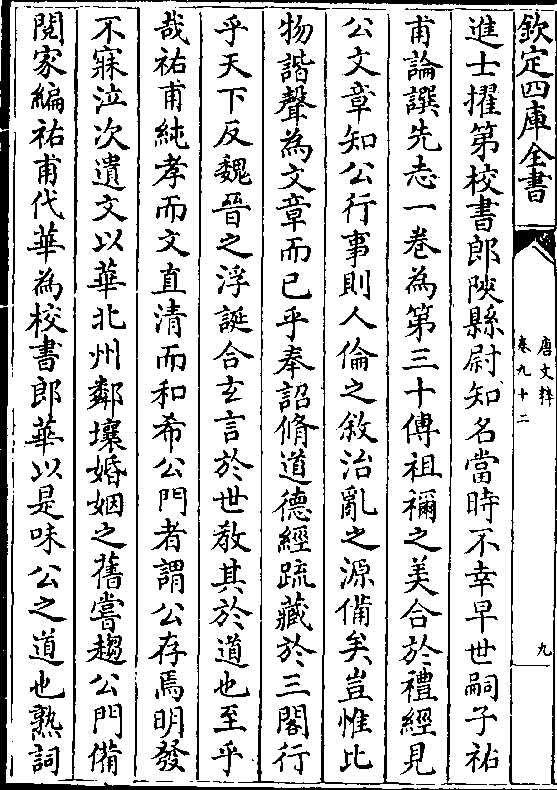 欽定四庫全書
唐文粹
卷九十二
九
進士擢第校書郎陜縣尉知名當時不幸早世嗣子祐
甫論譔先志一卷為第三十傳祖禰之美合於禮經見
公文章知公行事則人倫之敘治亂之源備矣豈惟比
物諧聲為文章而已乎奉詔脩道德經疏藏於三閣行
乎天下反魏晉之浮誕合玄言於世教其於道也至乎
哉祐甫純孝而文直清而和希公門者謂公存焉明發
不寐泣次遺文以華北州鄰壤婚姻之舊嘗趨公門備
閱家編祐甫代華為校書郎華以是味公之道也熟詞